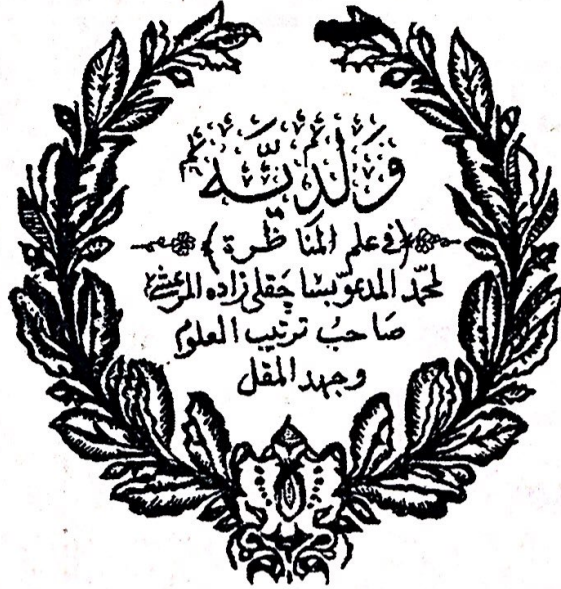 وَلَدِيَّه
﴿في علم المناظرة﴾
لمحمد المدعو بساجقلي زاده المرعشي
صاحب ترتيب العلوم
وجهد المقل